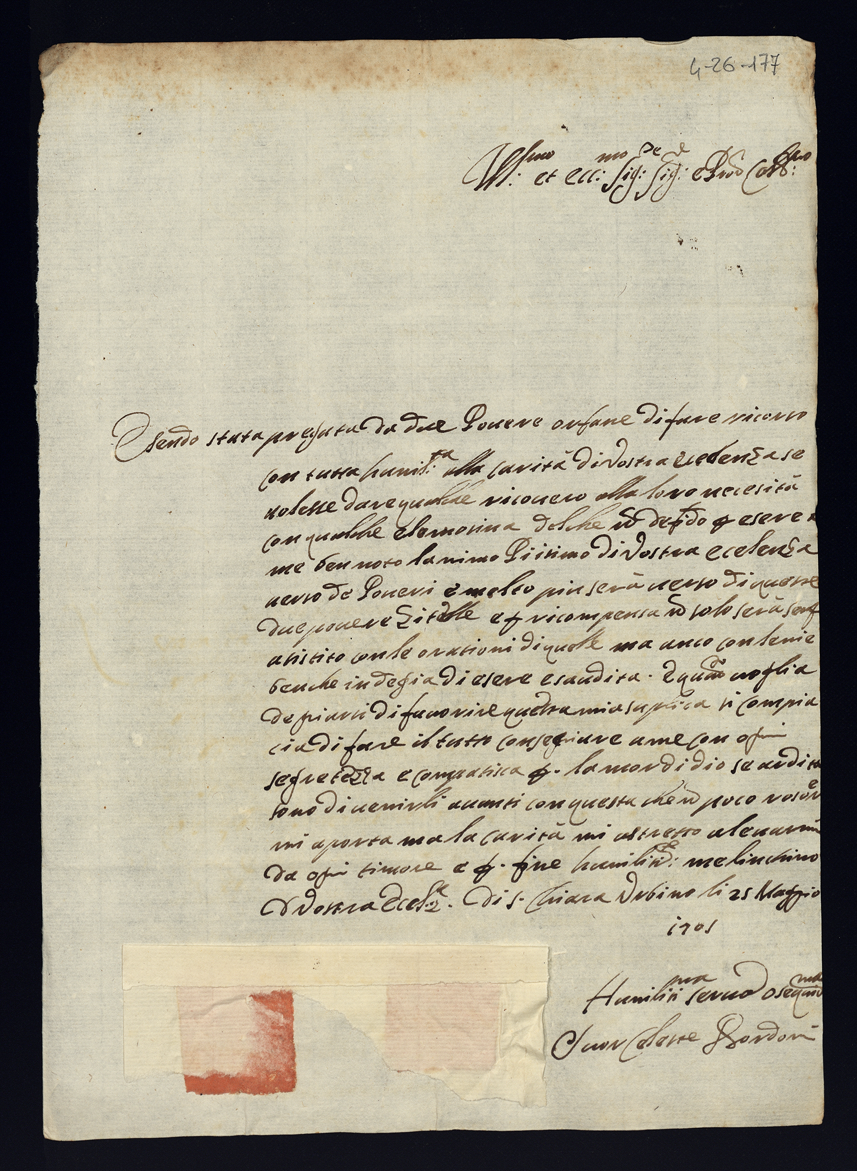 4-26-177
Ill:mo et ecc:mo Sig:re Sig:re e Pron Col:mo
Esendo stata pregata da due Povere orfane di fare ricorso
con tutta humil:ta alla carità di Vostra ecelenza se
volesse dare qualche ricovero alla loro necesità
con qualche elemosina del che nō
me ben noto lanimo Piisimo di Vostra ecelenza
verso de Poveri e molto piu serà verso di queste
due povere Zitelle e p ricompensa nō solo serà
asistito con le orationi di quelle ma anco con le mie
benche indegia di esere esaudita. E quando voglia
degiarsi di favorire questa mia suplica si compia
cia di fare il tutto consegiare a me con ogni
segretezza e compatisca p. la mor di dio se ardita
sono di venirli avanti con questa che nō poco rosore
mi aporta ma la carità mi astretto a levarmi
da ogni timore e p. fine me linchino
D Vostra Ecel:za. Di S. Chiara Urbino li 25 Maggio
1705
Humilis:ma serva Oseq:ma
Suor Celeste Bordoni